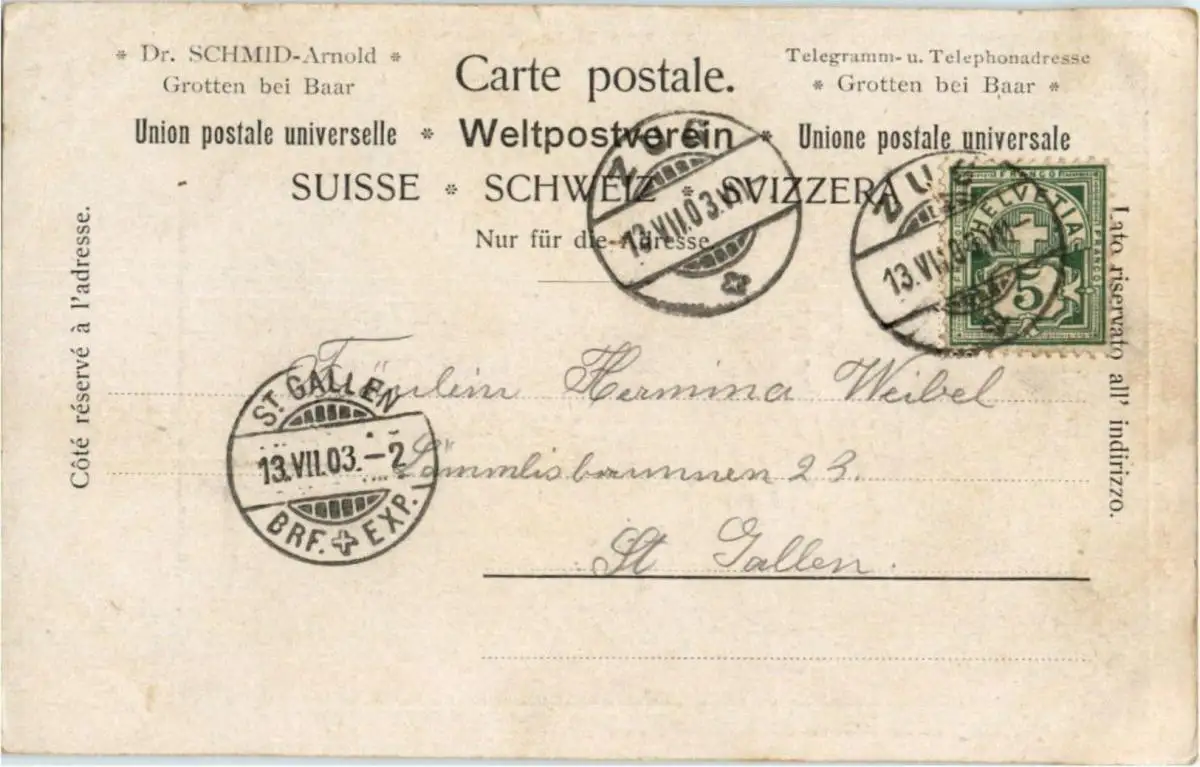 * Dr. SCHMID-Arnold *
Grotten bei Baar
Carte postale.
Telegramm- u. Telephonadresse
* Grotten bei Baar *
Union postale universelle * Weltpostverein * Unione postale universale
SUISSE * SCHWEIZ * SVIZZERA
Nur für die Adresse
Côté réservé à l'adresse.
Lato riservato all' indirizzo.
ZUG
13.VII.03.VIII-
ZUG
13.VII.03.VIII-
FRANCO
HELVETIA
FRANCO
5
Fräulein Hermina Weibel
Lämmlisbrunnen 23.
St Gallen.
ST. GALLEN
13.VII.03.-2
BRF. EXP.